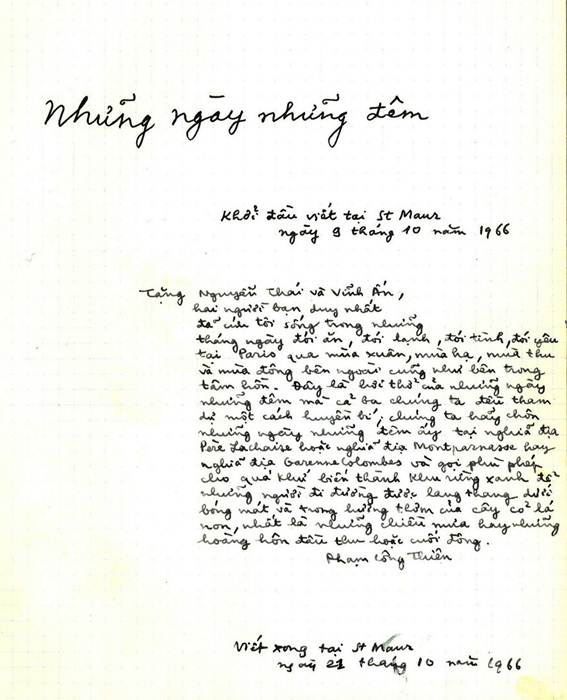 Những ngày những đêm
Khởi đầu viết tại St Maur
ngày 9 tháng 10 năm 1966
Tặng Nguyễn Thái và Vĩnh Ấn,
hai người bạn duy nhất
đã cứu tôi sống trong những
tháng ngày đói ăn, đói lạnh, đói tình, đói yêu
tại Paris qua mùa xuân, mùa hạ, mùa thu
và mùa đông bên ngoài cũng như bên trong
tâm hồn. Đây là hơi thở của những ngày
những đêm mà cả ba chúng ta đều tham
dự một cách huyền bí; chúng ta hãy chôn
những ngày những đêm ấy tại nghĩa địa
Père Lachaise hoặc nghĩa địa Montparnasse hay
nghĩa địa Garenne Colombes và gọi phù phép
cho quá khứ biến thành khu rừng xanh để
những người đi đường được lang thang dưới
bóng mát và trong hương thơm của cây cỏ lá
non, nhất là những chiều mưa hay những
hoàng hôn đầu thu hoặc cuối đông.
Phạm Công Thiện
Viết xong tại St Maur
ngày 21 tháng 10 năm 1966